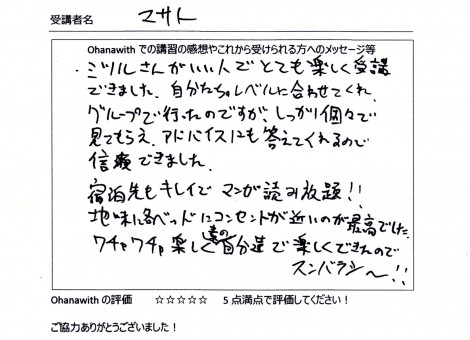 受講者名 マサト
Ohanawith での講習の感想やこれから受けられる方へのメッセージ等
・ミツルさんがいい人でとても楽しく受講
できました。自分たちのレベルに合わせてくれ、
グループで行ったのですが、しっかり個々で
見てもらえ、アドバイスにも答えてくれるので
信頼できました。
宿泊先もキレイで マンガ読み放題!!
地味に各ベッドにコンセントが近いのが最高でした。
ワチャワチャ楽しく 自分達で楽しくできたので
スンバラシ〜!!
Ohanawith の評価 ☆☆☆☆☆ 5 点満点で評価してください！
ご協力ありがとうございました！